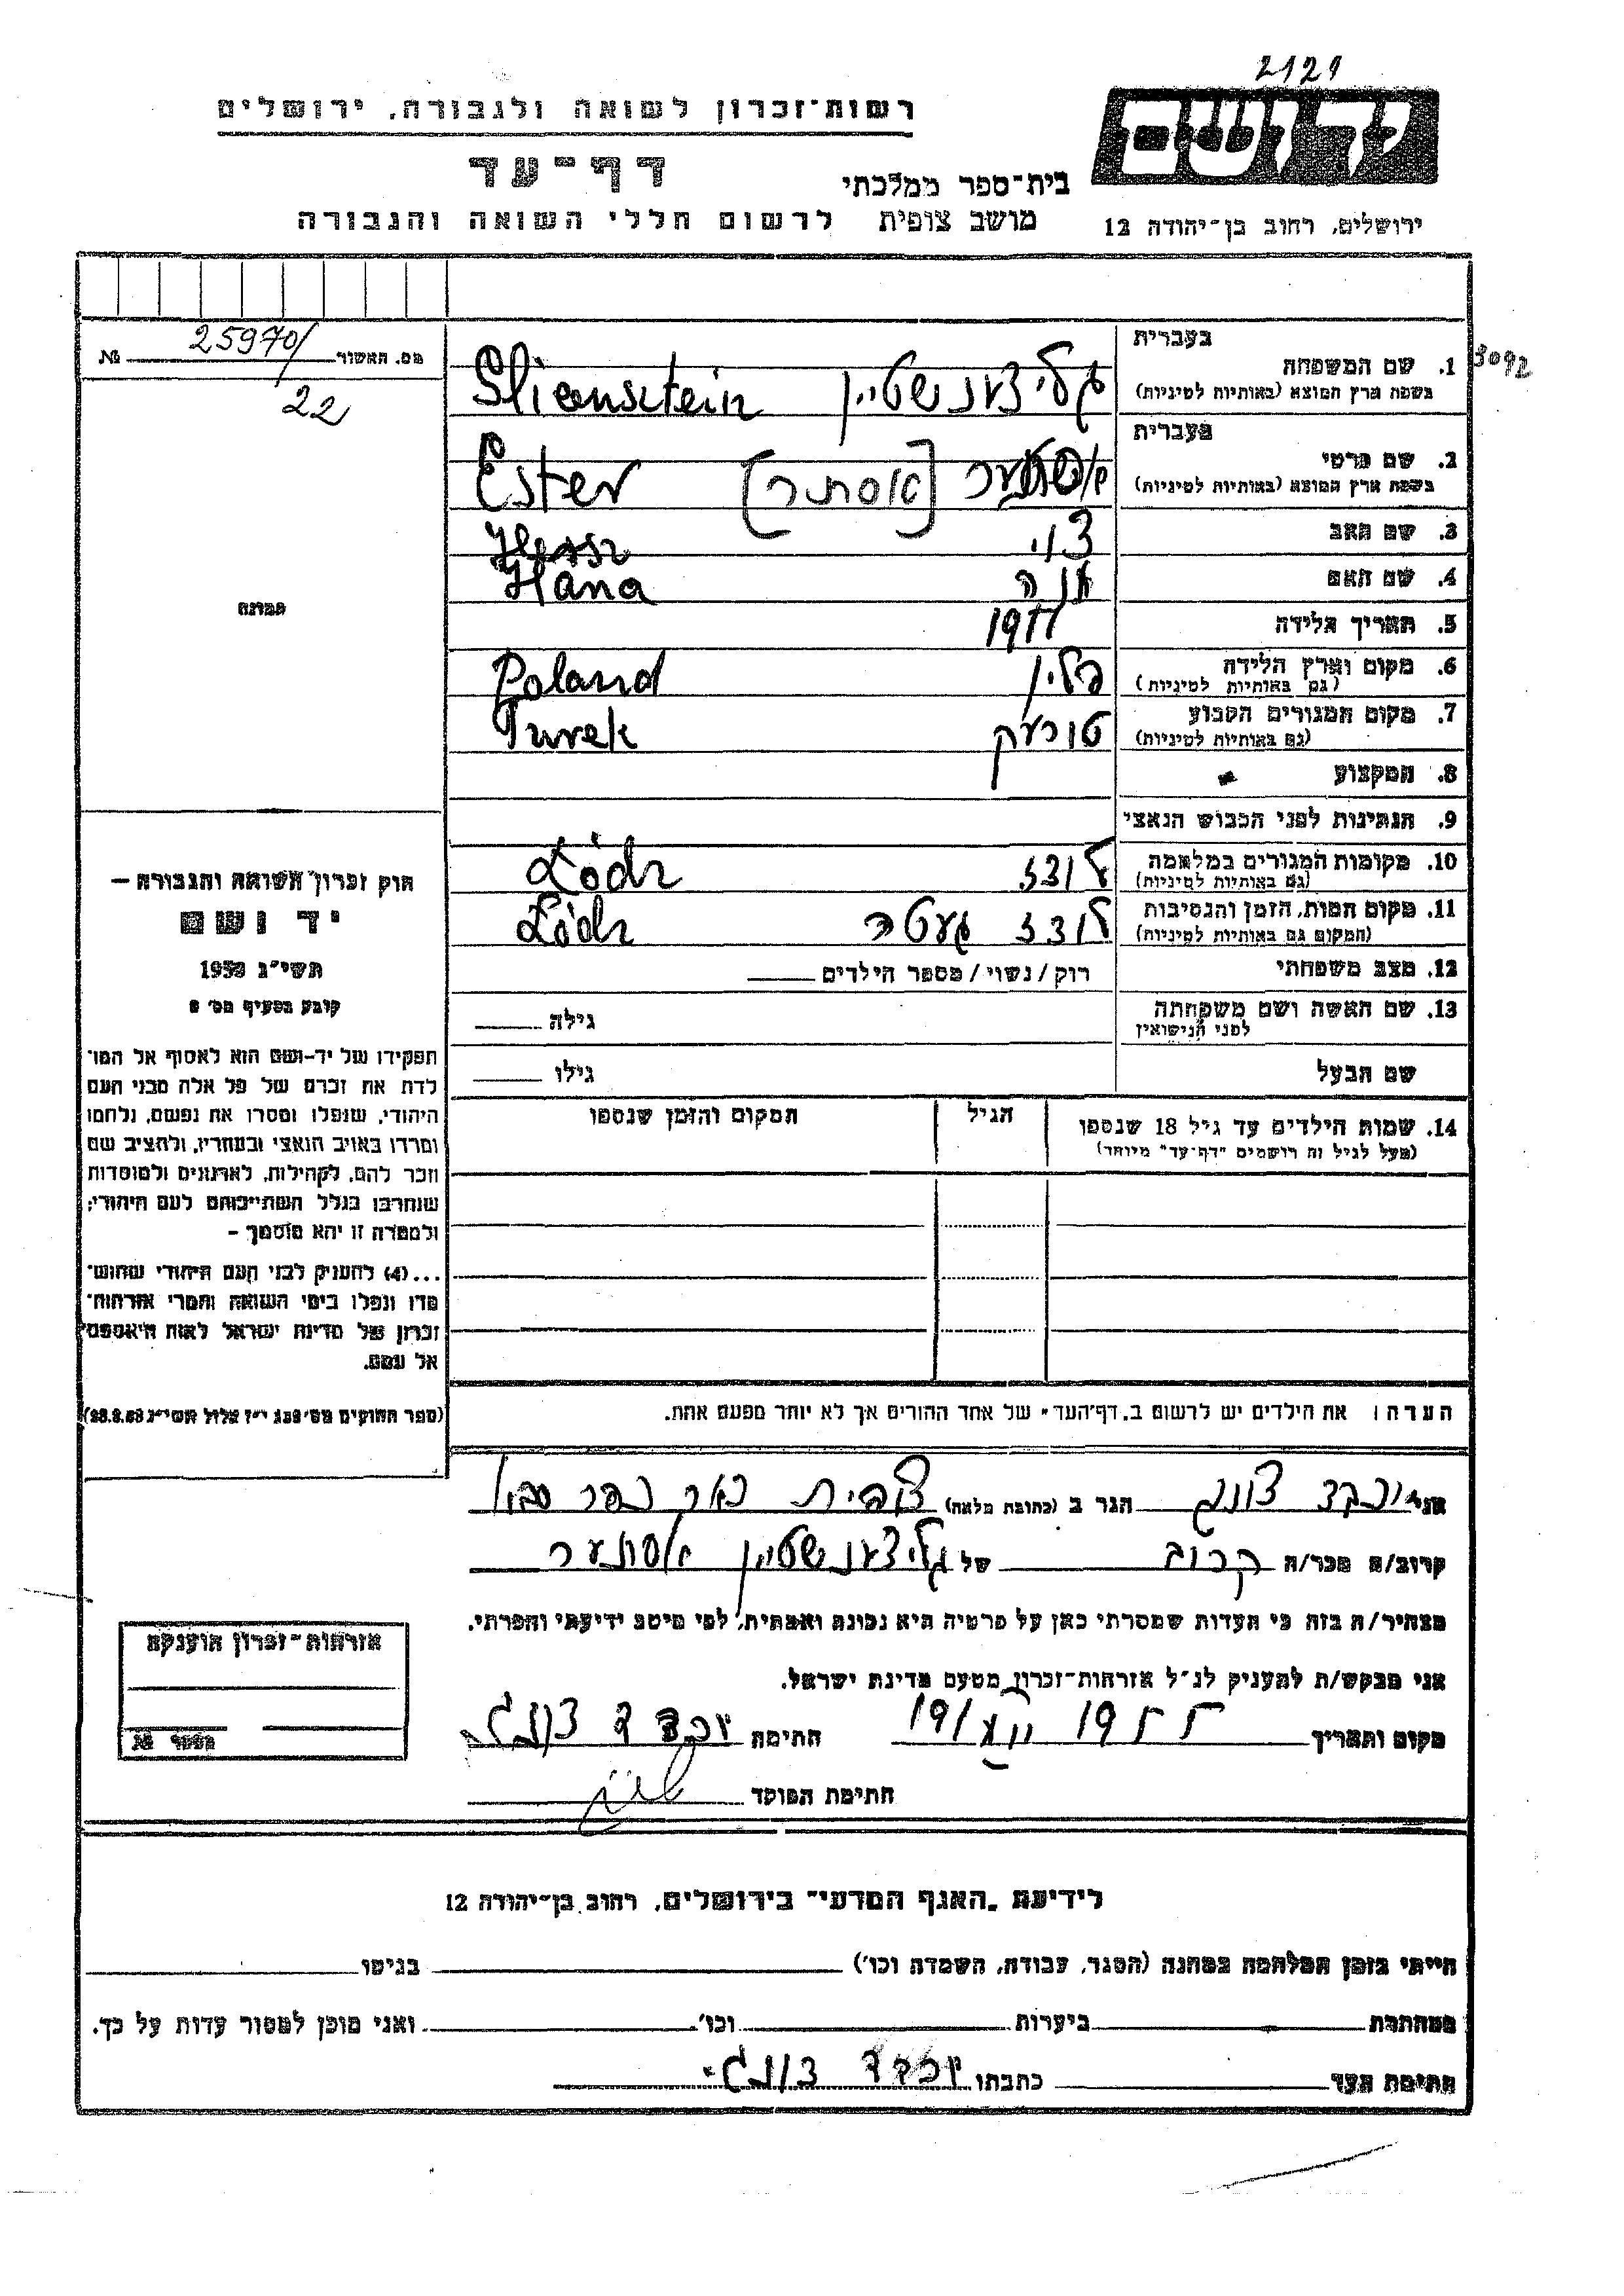 2121
רשות-זכרון לשואה ולגבורה, ירושלים
ידושם
דף-עד
בית-ספר ממלכתי
מושב צופית
לרשום חללי השואה והגבורה
ירושלים, רחוב בן-יהודה 12
מס. האשור 25970/ №
22
3092
בעברית
1. שם המשפחה
בשפת ארץ המוצא (באותיות לטיניות)
גליצנשטיין
בעברית
2. שם פרטי
בשפת ארץ המוצא (באותיות לטיניות)
[אסתר] Ester
3. שם האב
צבי
4. שם האם
חנה Hana
5. תאריך הלידה
6. מקום וארץ הלידה
(גם באותיות לטיניות)
פולין Poland
7. מקום המגורים הקבוע
(גם באותיות לטיניות)
טורעק Turek
8. המקצוע
9. הנתינות לפני הכבוש הנאצי
10. מקומות המגורים במלחמה
(גם באותיות לטיניות)
לודז Łódz
11. מקום המות, הזמן והנסיבות
(המקום גם באותיות לטיניות)
לודז געטה Łódz
12. מצב משפחתי
רוק/נשוי/מספר הילדים
13. שם האשה ושם משפחתה
לפני הנישואין
גילה
שם הבעל
גילו
14. שמות הילדים עד גיל 18 שנספו
(מעל לגיל זה רושמים "דף-עד" מיוחד)
הגיל
המקום והזמן שנספו
תמונה
חוק זכרון השואה והגבורה —
יד ושם
תשי"ג 1953
קובע בסעיף מס' 2
תפקידו של יד-ושם הוא לאסוף אל המו־
לדת את זכרם של כל אלה מבני העם
היהודי, שנפלו ומסרו את נפשם, נלחמו
ומרדו באויב הנאצי ובעוזריו, ולהציב שם
וזכר להם, לקהילות, לארגונים ולמוסדות
שנחרבו בגלל השתייכותם לעם היהודי;
ולמטרה זו יהא מוסמך —
...(4) להעניק לבני העם היהודי שהוש־
מדו ונפלו בימי השואה והמרי אזרחות־
זכרון של מדינת ישראל לאות היאספם
אל עמם.
הערה: את הילדים יש לרשום ב"דף-העד" של אחד ההורים אך לא יותר מפעם אחת.
אני יוכבד צונג הגר ב (כתובת מלאה) צופית כפר סבא
קרוב/ה מכר/ה קרוב של גליצנשטיין אסתער
מצהיר/ה בזה כי העדות שמסרתי כאן על פרטיה היא נכונה ואמתית, לפי מיטב ידיעתי והכרתי.
אני מבקש/ת להעניק לנ"ל אזרחות-זכרון מטעם מדינת ישראל.
מקום ותאריך
חתימה יוכבד צונג
חתימת הפוקד
אזרחות-זכרון הוענקה
מספר №
לידיעת "האגף המדעי" בירושלים, רחוב בן-יהודה 12
הייתי בזמן המלחמה במחנה (הסגר, עבודה, השמדה וכו') בגיטו
במחתרת ביערות וכו' ואני מוכן למסור עדות על כך.
חתימת העד כתבתו יוכבד צונג